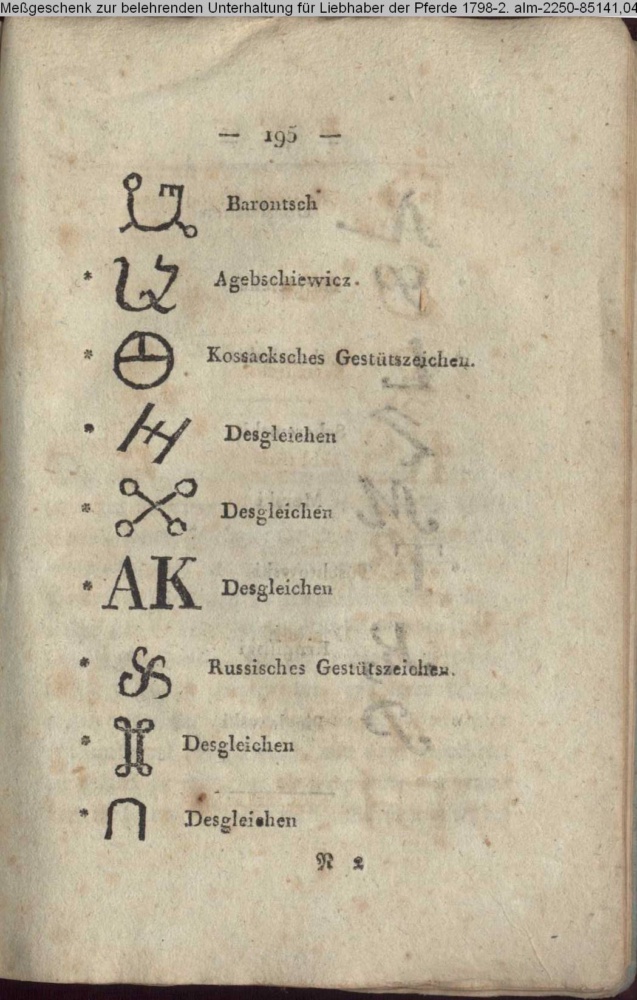 Meßgeschenk zur belehrenden Unterhaltung für Liebhaber der Pferde 1798-2. alm-2250-85141,04
— 195 —
Barontsch
* Agebschiewicz.
* Kossacksches Gestütszeichen.
* Desgleichen
* Desgleichen
* AK Desgleichen
* Russisches Gestütszeichen.
* Desgleichen
* Desgleichen
N 2